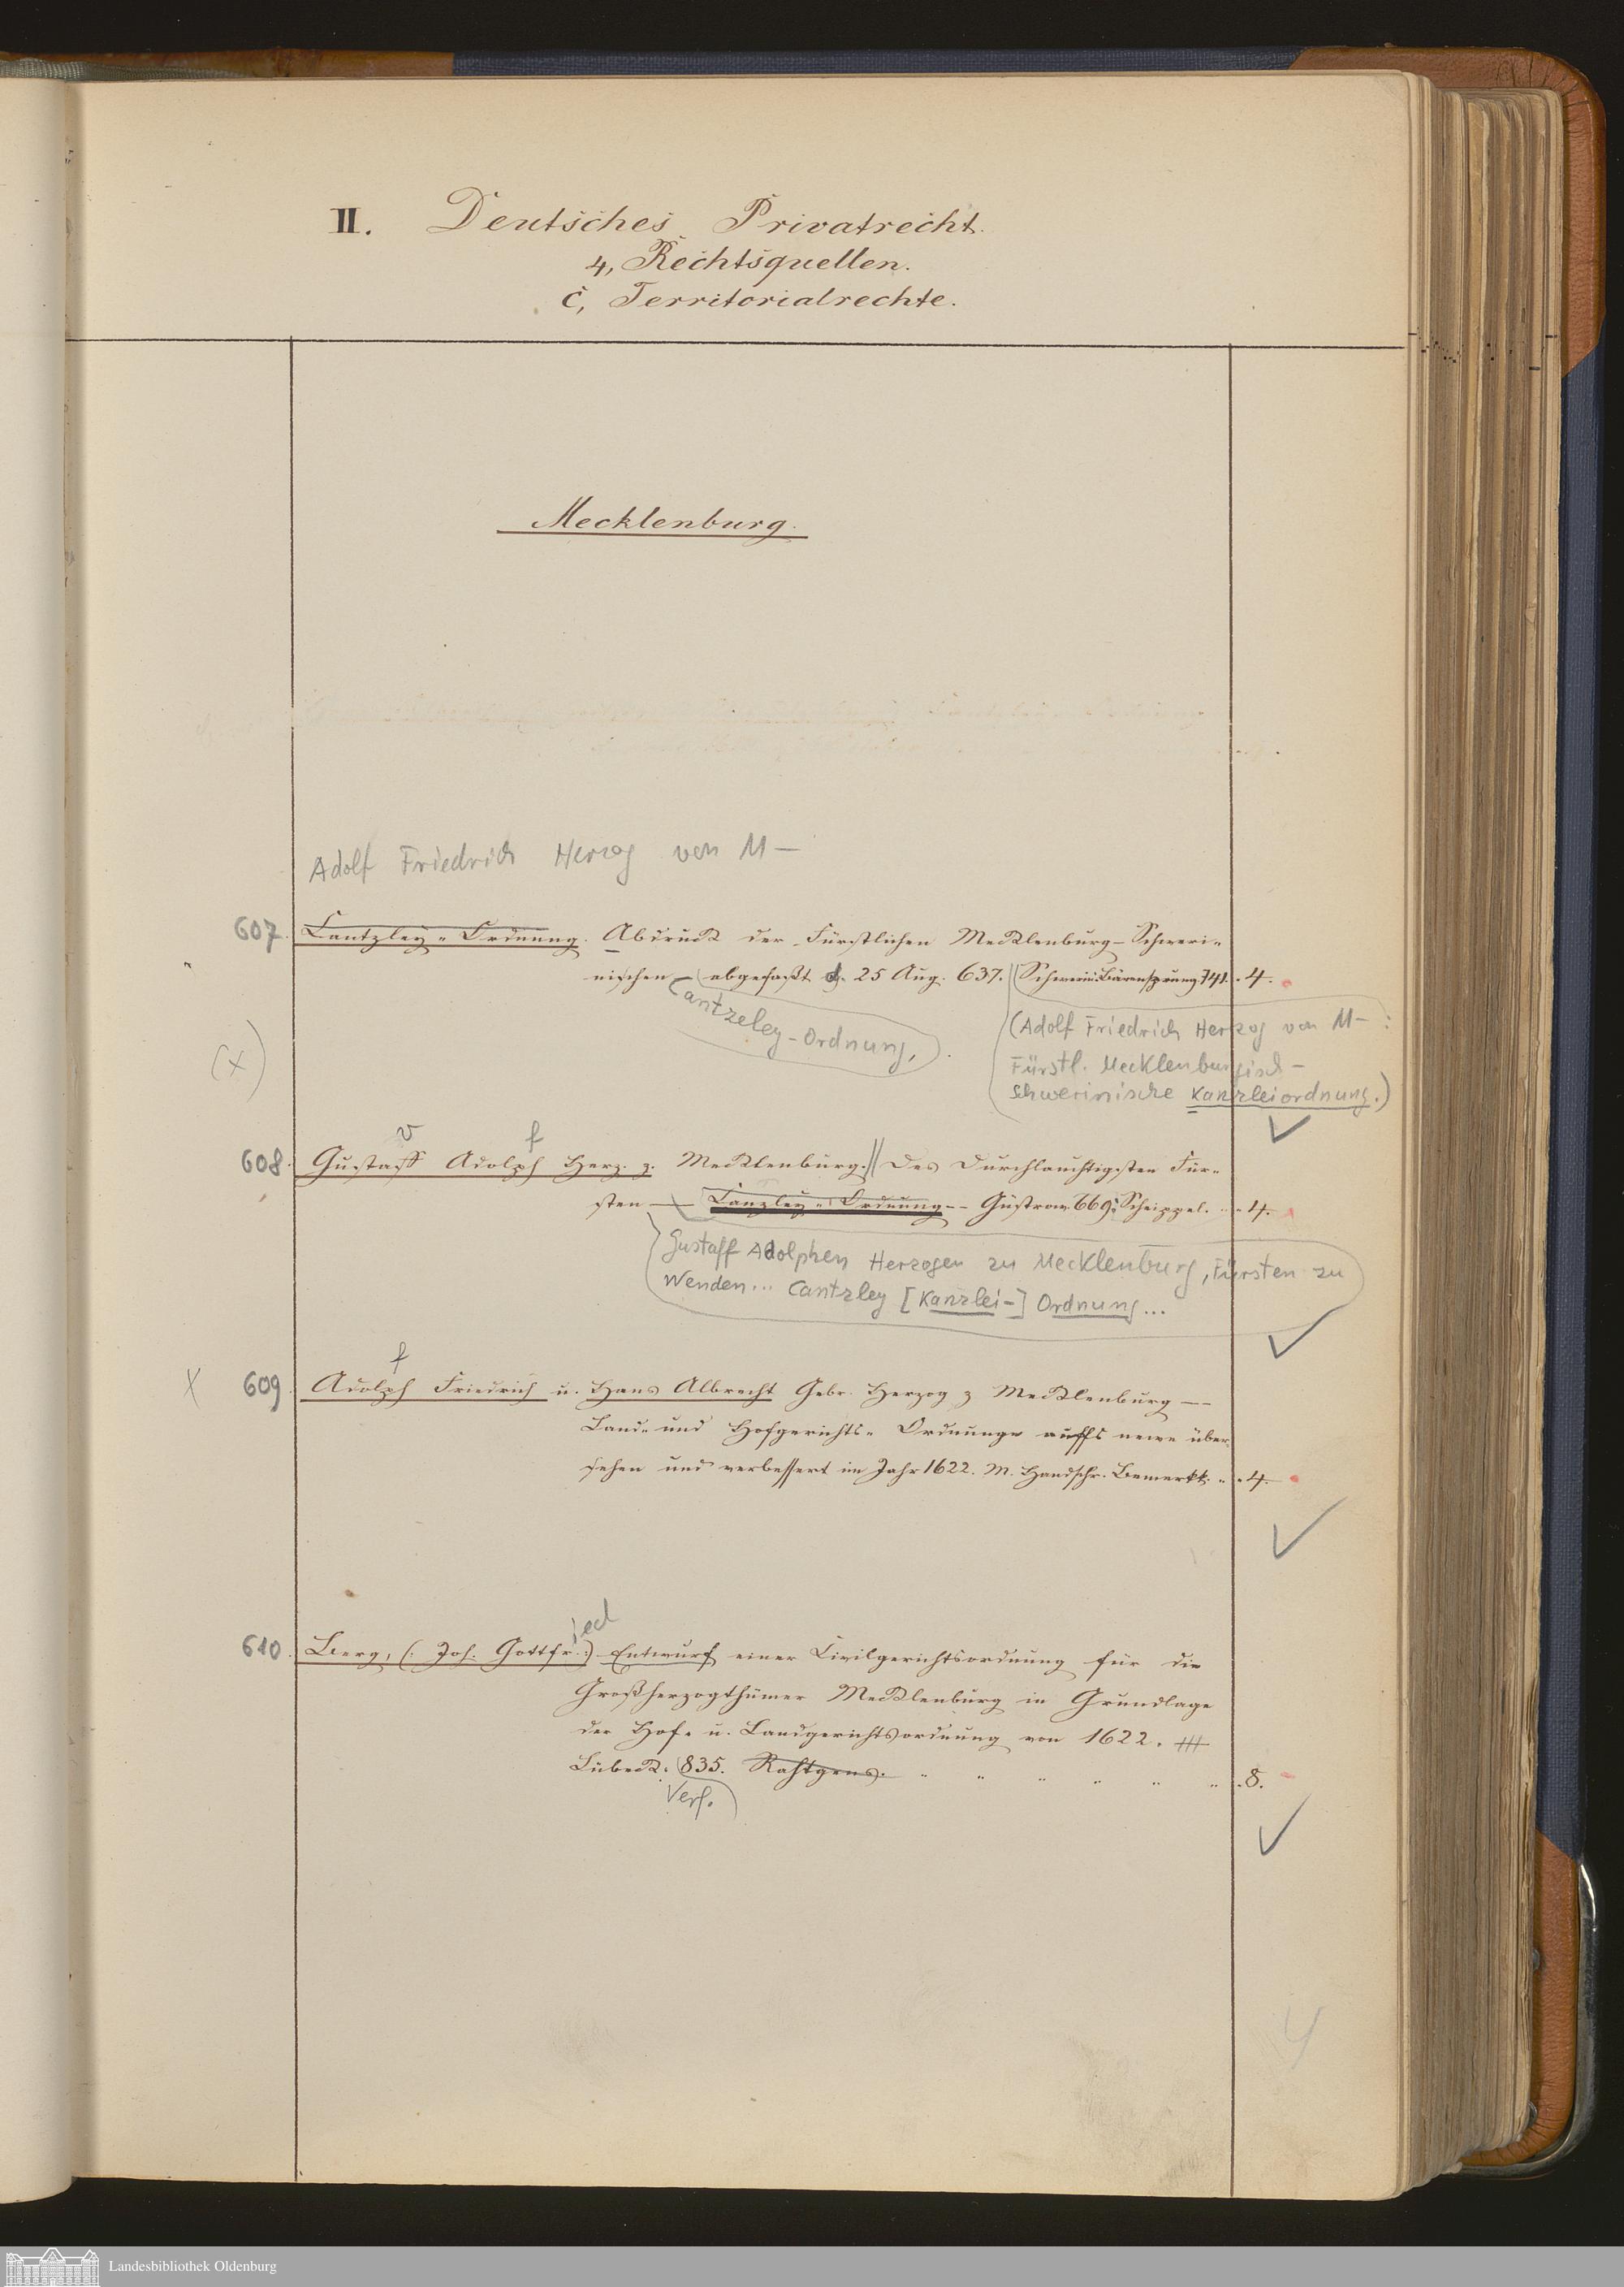 II. Deutsches Privatrecht.
4, Rechtsquellen.
c, Territorialrechte.
Mecklenburg.
Adolf Friedrich Herzog von M—
607. Cantzley-Ordnung. Abdruck der Fürstlichen Mecklenburg-Schweri-
nischen — abgefaßt d. 25 Aug. 637. (Schwerin: Bärensprung 741. 4.
Cantzeley-Ordnung,
(Adolf Friedrich Herzog von M— :
Fürstl. Mecklenburgisch-
schwerinische Kanzleiordnung.)
(x)
v f
608. Gustaff Adolph Herz. z. Mecklenburg. // Des Durchlauchtigsten Für-
sten — Canzley-Ordnung -- Güstrow 669: Scheippel. 4.
Gustaff Adolphen Herzogen zu Mecklenburg, Fürsten zu
Wenden... Cantzley [Kanzlei-] Ordnung...
f
x 609. Adolph Friedrich u. Hans Albrecht Gebr. Herzog z Mecklenburg --
Land- und Hofgerichts- Ordnunge auffs newe über-
sehen und verbessert im Jahr 1622. M. Handschr. Bemerkk. 4.
ied
610. Berg, (: Joh. Gottfr. :) Entwurf einer Civilgerichtsordnung für die
Großherzogthümer Mecklenburg in Grundlage
der Hof- u. Landgerichtsordnung von 1622.
Lübeck: 835. Rahtgens. 8.
Verf.
Landesbibliothek Oldenburg